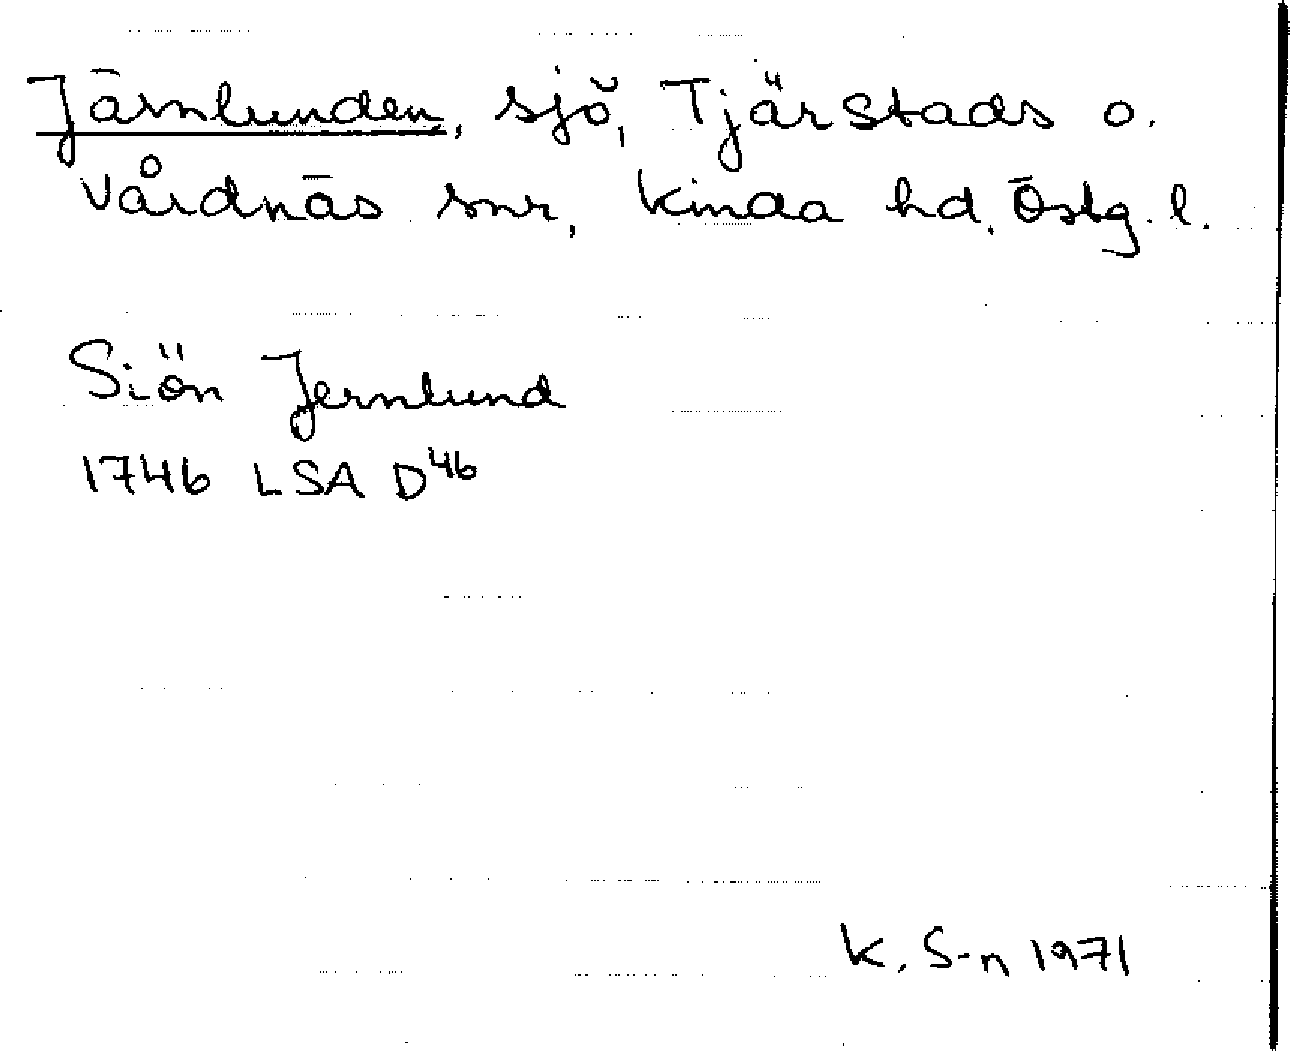 Järnlunden, sjö, Tjärstads o.
Vårdnäs snr, Kinda hd. Östg. l.
Siön Jernlund
1746 LSA D46
K. S-n 1971